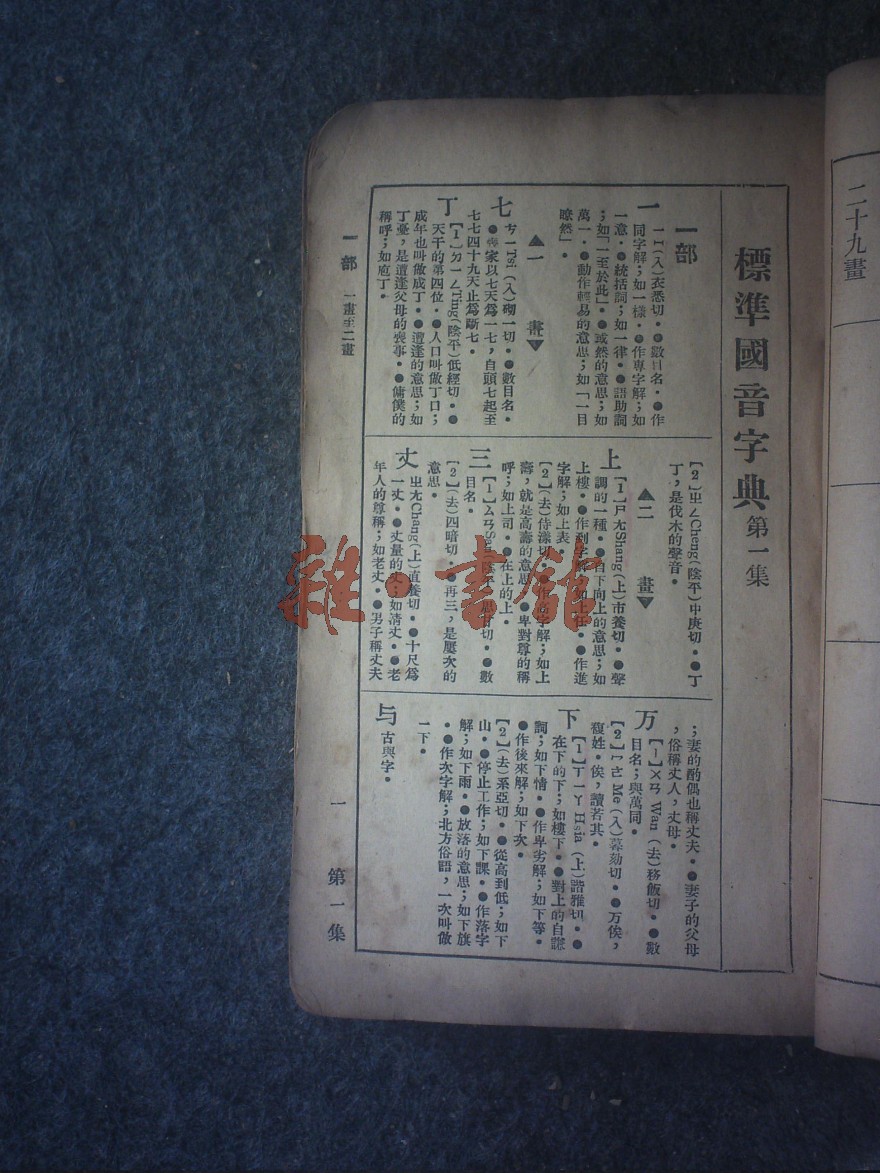 二十九畫
標準國音字典 第一集
一部
一
一I(入)衣悉切・●數目名・●作
同字解;如一樣・●作專字解;如
一意・●統括詞;如一律・●語助詞
;如「一至於此」・●或然的意思;如
萬一・●動作輕易的意思;如「一目
瞭然」・
▲一 畫▼
七
ㄘ一Tsi(入)砌一切・●數目名・
●喪家以七天爲一七,自頭七起至
七七四十九天止爲斷七・
丁
【1】ㄉ一ㄥTing(陰平)低經切・●
天干的第四位・●人口叫做丁口;
成年也叫做成丁・●遭逢的意思;如
丁憂,是遭逢父母的喪事・●傭僕的
稱呼;如庖丁・
【2】ㄓㄥCheng(陰平)中庚切・●丁
丁,是伐木的聲音・
▲二 畫▼
上
【1】ㄕㄤShang(上)市養切・●聲
調的一種・●自下向上的意思;如
上樓・●作到字解;如上任・●作進
字解;如上表・
【2】(去)侍漾切・●作高字解;如上
壽,就是高壽的意思・●卑對尊的稱
呼;如上司・●在上的上・
三
【1】ㄙㄢSan(陰平)思甘切・●數
目名・
【2】(去)四暗切・●再三,是屢次的
意思・
丈
ㄓㄤChang(上)直養切・●十尺爲
一丈・●丈量的丈;如清丈・●老
年人的尊稱;如老丈・●男子稱丈夫
;妻的酌偶也稱丈夫・●妻子的父母
,俗稱丈人,丈母・
万
【1】ㄨㄢ Wan(去)移飯切・●數
目名;與萬同・
【2】ㄇㄜ Me(入)幕劾切・●万俟,
複姓・俟,讀若其・
下
【1】ㄒ一ㄚ Hsia(上)諧雅切・●
在下的下;如樓下・●對上的自謙
詞;如下情・●作卑劣解;如下等・
●作後來解;如下次・
【2】(去)系亞切・●從高到低;如下
山・●停止工作;如下課・●作落字
解;如下雨・●放落的意思;如下旗
・●作次字解;北方俗語,一次叫做
一下・
与
古與字・
一部 一畫至二畫
一
第一集
雜・書館